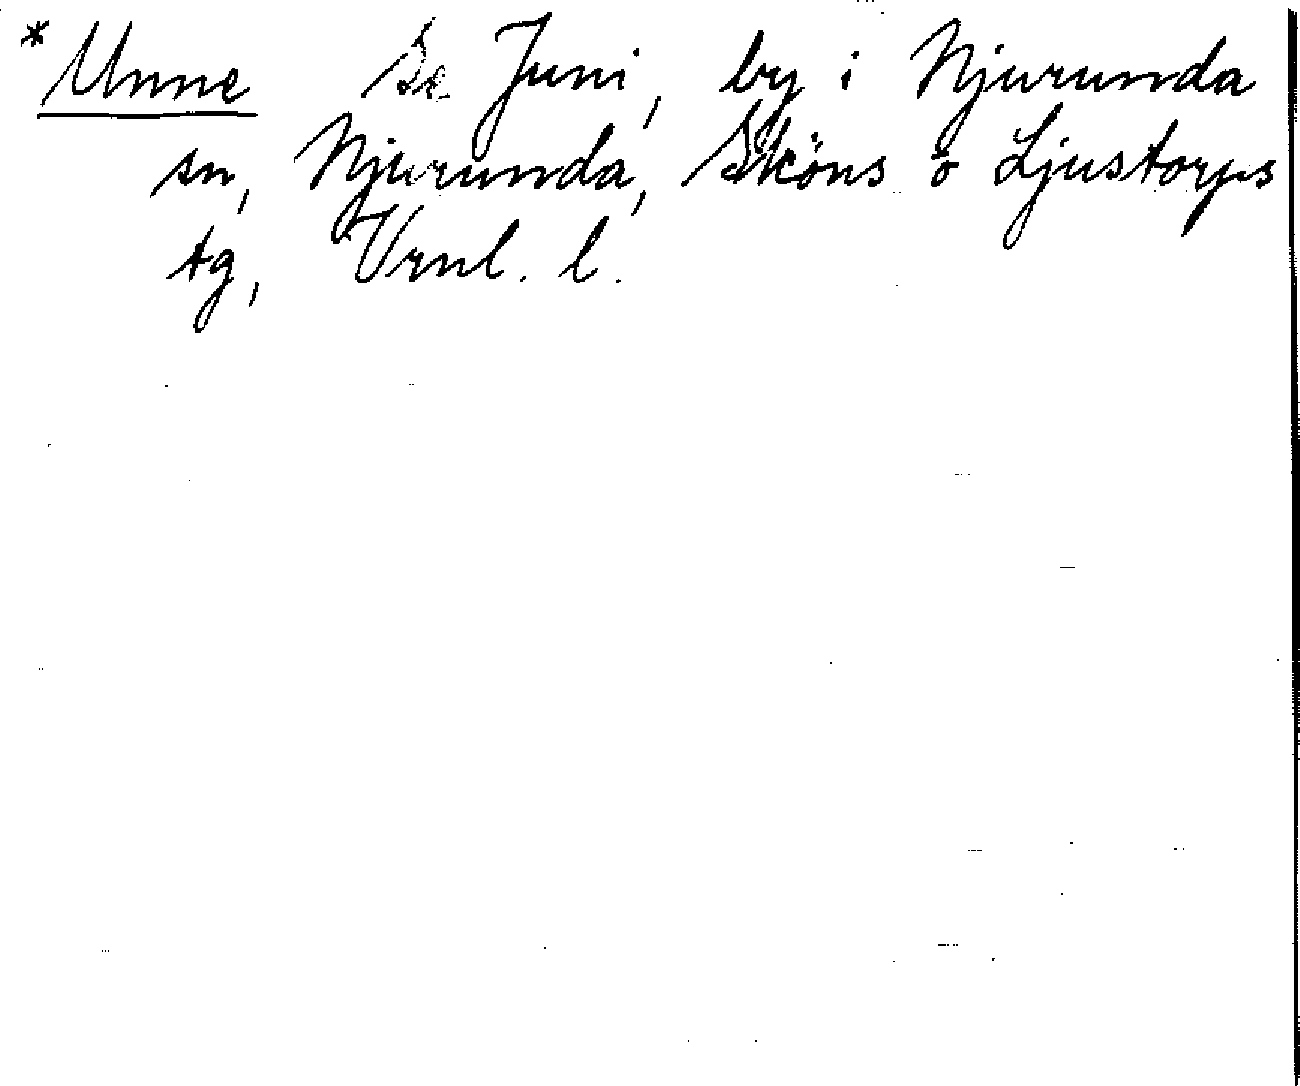 *Unne Se Juni, by i Njurunda
sn, Njurunda, Sköns o Ljustorps
tg, Vrnl. l.